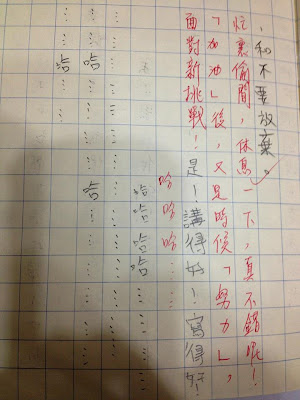 、和不要放棄。
忙裏偷閒,休息一下,真不錯呢!
「加油」後,又是時候「努力」,
面對新挑戰!是!講得好!寫得好!
哈哈哈……
哈哈哈哈……
……
……哈……哈……
……哈……